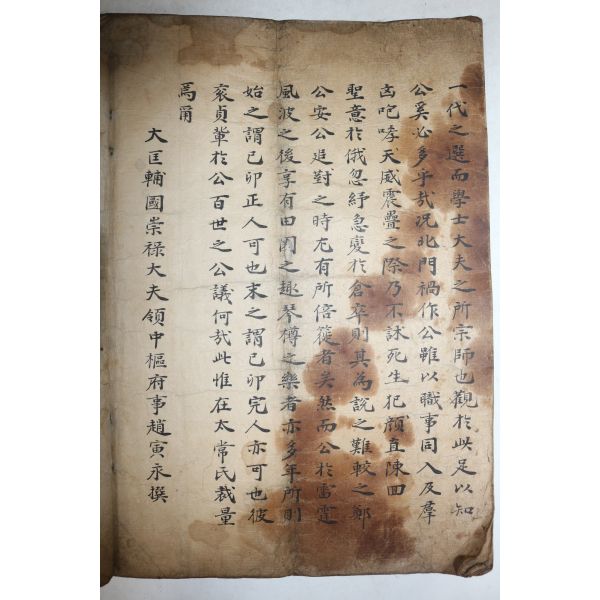 一代之選而學士大夫之所宗師也觀於此足以知
公奚必多乎哉况北門禍作公雖以職事同入及羣
凶咆哮天威震疊之際乃不訹死生犯顔直陳回
聖意於俄忽紓急變於倉卒則其為說之難較之鄭
公安公追對之時尤有所倍蓰者矣然而公於雷霆
風波之後享有田園之趣琴樽之樂者亦多年所則
始之謂己卯正人可也末之謂己卯完人亦可也彼
衮貞輩於公百世之公議何哉此惟在太常氏裁量
焉爾
大匡輔國崇祿大夫領中樞府事趙寅永撰